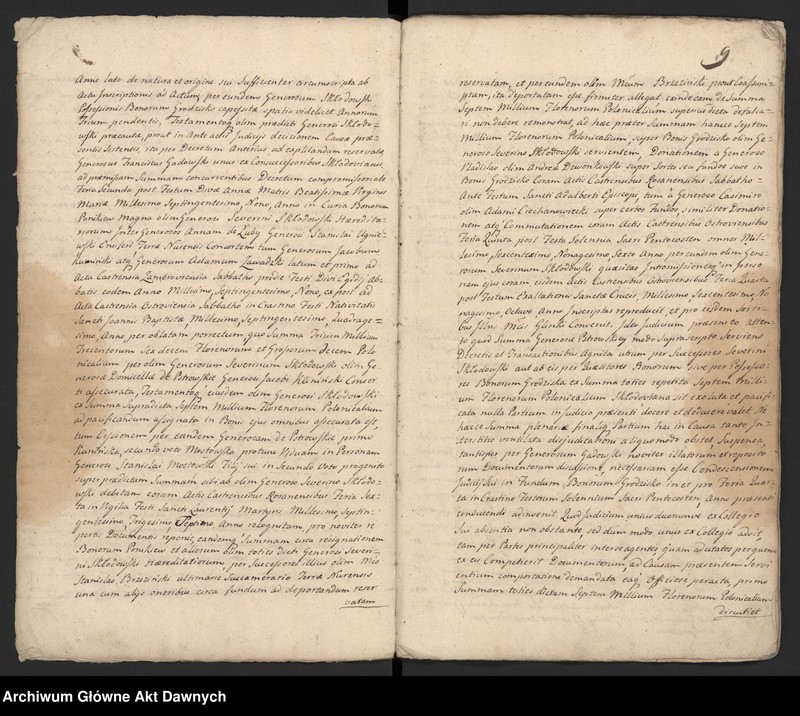 Anne lato de natura et origine seu Sufficienter circumscripta ab
Actu Inscriptionis ad Actum, per eundem Generosum Skłodowski
Possessionis Bonorum Grodzisko capessita spatio videlicet Annorum
Trium pendentis, Testamentoq olim prædicti Generosi Skłodo-
wski præcauta, prout in Ante acto Judicij decisionem Causæ præ-
sentis Sistentis, ita per Decretum Anterius ad expilandum reservata,
Generosus Franciscus Gadowski unus ex Consuccessoribus Skłodovianis,
ad præmissam Summam concurrentibus Decretum compromissoriale
Feria Secunda post Festum Divæ Annæ Matris Beatissimæ Virginis
Mariæ Millesimo Septingentesimo, Nono, Anno in Curia Bonorum
Ponikiew Magna olim Generosi Severini Skłodowski Hæredita-
riorum Inter Generosos Annam de Luby Generosi Stanislai Ignie-
wski Ensiferi Terræ Nurensis Consortem tum Generosum Jacobum
atq Generosum Adamum Zawadzki latum et primo ad
Acta Castrensia Zambroviensia Sabbatho pridie Festi Divi Egidij Ab-
batis eodem Anno Millesimo, Septingentesimo, Nono, ex post ad
Acta Castrensia Ostroviensia Sabbatho in Crastino Festi Nativitatis
Sancti Joannis Baptistæ, Millesimo, Septingentesimo, Quadrage-
simo, Anno per oblatam porrectum, quo Summa Trium Millium
Trecentorum Sexdecem Florenorum et Grossorum Decem Polo-
nicalium per olim Generosum Severinum Skłodowski olim Ge-
nerosæ Domicellæ de Petrowskie Generosi Jacobi Kamiński Consor-
ti assecurata, Testamentoq ejusdem olim Generosi Skłodowski
ex Summa Supradicta Septem Millium Florenorum Polonicalium
ad pacificandum assignata in Bonis ejus omnibus assecurata est,
tum Cessionem per eandem Generosam de Petrowskie primo
Kamińska, secundo voto Mostowska protunc Viduam in Personam
Generosi Stanislai Mostowski Filij sui in Secundo Voto progeniti
super prædictam Summam sibi ab olim Generoso Severino Skłodo-
wski debitam coram Actis Castrensibus Rosanensibus Feria Sex-
ta in Vigilia Festi Sancti Laurentij Martyris Millesimo, Septin-
gentesimo, Trigesimo, Septimo, Anno recognitam, pro noviter re
pertis Documentis reponit, eandemq Summam circa resignationem
Bonorum Ponikiew et aliorum olim toties dicti Generosi Severi-
ni Skłodowski Hæreditariorum, per Successores illius olim Mco
Stanislao Brzezinski ultimarie Succamerario Terræ Nurensis
una cum alijs oneribus circa fundum ad deportandum reser
vatam
9
reservatam, et per eundem olim Mcum Brzezinski, prout Coassum-
ptam, ita deportatam esse firmiter allegat, exinde eam de Summa
Septem Millium Florenorum Polonicalium superius dicta defalca-
ri non debere remonstrat, ad hæc præter Summam hancce Septem
Millium Florenorum Polonicalium, super Bonis Grodzisko olim Ge-
neroso Severino Skłodowski servientem Donationem a Generoso
Vladislao olim Andreæ Dzwonkowski super Sortes seu fundos suos in
Bonis Grodzisko Coram Actis Castrensibus Rosanensibus Sabbatho
Ante Festum Sancti Adalberti Episcopi, tum à Generoso Casimiro
olim Adami Ciechanowiecki super certos Fundos, similiter Donatio-
nem atq Commutationem coram Actis Castrensibus Ostroviensibus
Feria Quinta post Festa Solennia Sacri Pentecosten omnes Mil-
lesimo Sexcentesimo Nonagesimo Sexto Anno per eundem olim Gene-
rosum Severinum Skłodowski quæsitas Intromissionemq in perso-
nam ejus coram eisdem Actis Castrensibus Ostroviensibus Feria Quarta
post Festum Exaltationis Sanctæ Crucis, Millesimo Sexcentesimo, No-
nagesimo, Octavo Anno Inscriptas reproducit, et pro eisdem Sorti-
bus Convenit. Ideo Judicium præsens atten-
to quod Summa Generosæ Petrowskiey modo Suprascripto Serviens
Decretis et Transactionibus Agnita utrum per Successores Severini
Skłodowski aut ab eis per Quæsitores Bonorum Sive per Possesso-
res Bonorum Grodziska ex Summa toties repetita Septem Milli-
um Florenorum Polonicalium Skłodoviana sit exoluta et pacifi-
cata nulla Partium in Judicio præsenti docere et deducere valet. Ne
hæcce Summa plenariæ finaliq Partium hac in Causa tanto In-
terstitio ventilata disjudicationi aliquo modo obstet, Suspensa
tantisper per Generosum Gadowski noviter illatorum et reposito-
rum Documentorum discussione, necessariam esse Condescensionem
Judicij sui in Fundum Bonorum Grodzisko in et pro Feria Quar-
ta in Crastino Festorum Solennium Sacri Pentecosten, Anno præsenti
conducendi adinvenit. Quod Judicium unius duorumve ex Collegio
Sui absentia non obstante, sed dum modo unus ex Collegio adsit,
tam per Partes principaliter interse agentes quam adcitatos perquem
ex eis Competierit Documentorum, ad Causam præsentem Servi
entium comportatione demandata eaq Officiose peracta, primo
Summam toties dictam Septem Millium Florenorum Polonicalium
discutiet
Archiwum Główne Akt Dawnych